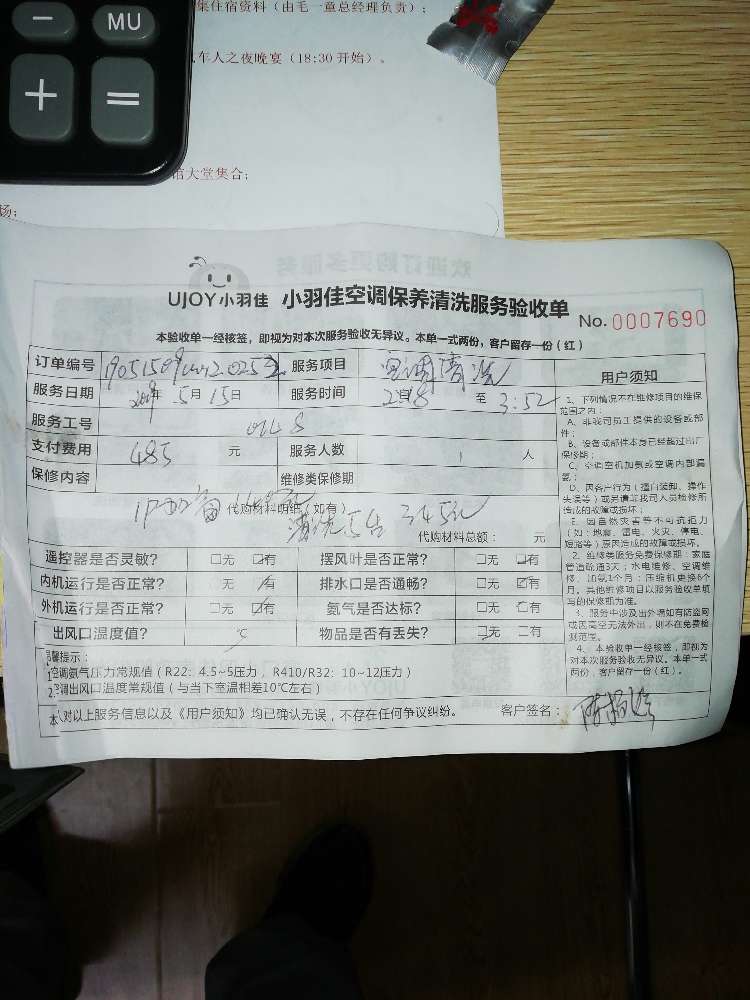 MU
集住宿资料（由毛一童总经理负责）；
车人之夜晚宴（18:30 开始）。
大堂集合；
场：
UJOY小羽佳 小羽佳空调保养清洗服务验收单
No. 0007690
本验收单一经核签，即视为对本次服务验收无异议。本单一式两份，客户留存一份（红）
订单编号 服务项目 空调清洗
服务日期 2019年 5月 15日 服务时间 2:18 至 3:52
服务工号
支付费用 485 元 服务人数 1 人
保修内容 维修类保修期
代购材料明细（如有）
清洗5台 345元
代购材料总额： 元
遥控器是否灵敏? 无 有 摆风叶是否正常? 无 有
内机运行是否正常? 无 有 排水口是否通畅? 无 有
外机运行是否正常? 无 有 氨气是否达标? 无 有
出风口温度值? ℃ 物品是否有丢失? 无 有
馨提示：
空调氨气压力常规值（R22：4.5~5压力，R410/R32：10~12压力）
调出风口温度常规值（与当下室温相差10℃左右）
本 对以上服务信息以及《用户须知》均已确认无误，不存在任何争议纠纷。 客户签名：
用户须知
1、下列情况不在维修项目的维保
范围之内：
A、非我司员工提供的设备或部
件；
B、设备或部件本身已经超过出厂
保修期；
C、空调空机加氨或空调内部漏
氨；
D、因客户行为（擅自装卸、操作
失误等）或另请非我司人员检修所
造成的故障或损坏；
E、因自然灾害等不可抗拒力
（如：地震、雷电、火灾、停电、
短路等）原因造成的故障或损坏。
2、维修类服务免费保修期：家庭
管道疏通3天；水电维修、空调维
修、加氨1个月；压缩机更换6个
月。其他维修项目以服务验收单填
写的保修期为准。
3、服务中涉及出外墙如有防盗网
或因高空无法外出，则不在免费检
测范庄。
4、本验收单一经核签，即视方
对本次服务验收无异议。本单一式
两份，客户留存一份（红）。